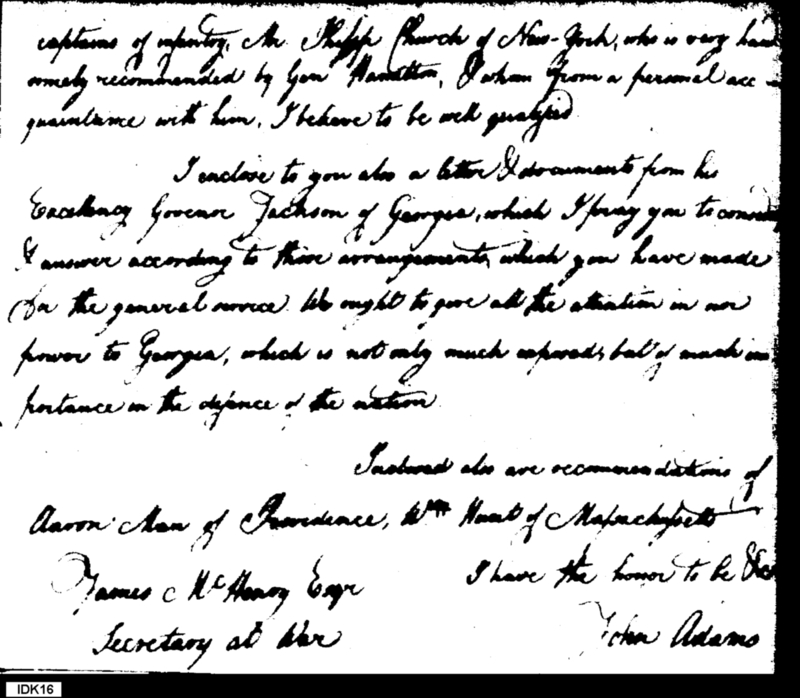 captains of infantry, Mr. Philipp Church of New-York, who is very han
somely recommended by Gen Hamilton, & whom from a personal acc
quaintance with him, I beheve to be well qualified
I enclose to you also a letter & documents from his
Excellency Govenor Jackson of Georgia, which I pray you to consider
& answer according to those arrangements, which you have made
for the general service. We ought to give all the attention in our
power to Georgia, which is not only much exposed, but of much im
portance in the defence of the nation
Inclosed also are recommendations of
Aaron Man of Providence, Wm Hunt of Massachusetts
I have the honor to be &c
James McHenry Esqr
John Adams
Secretary at War
IDK16